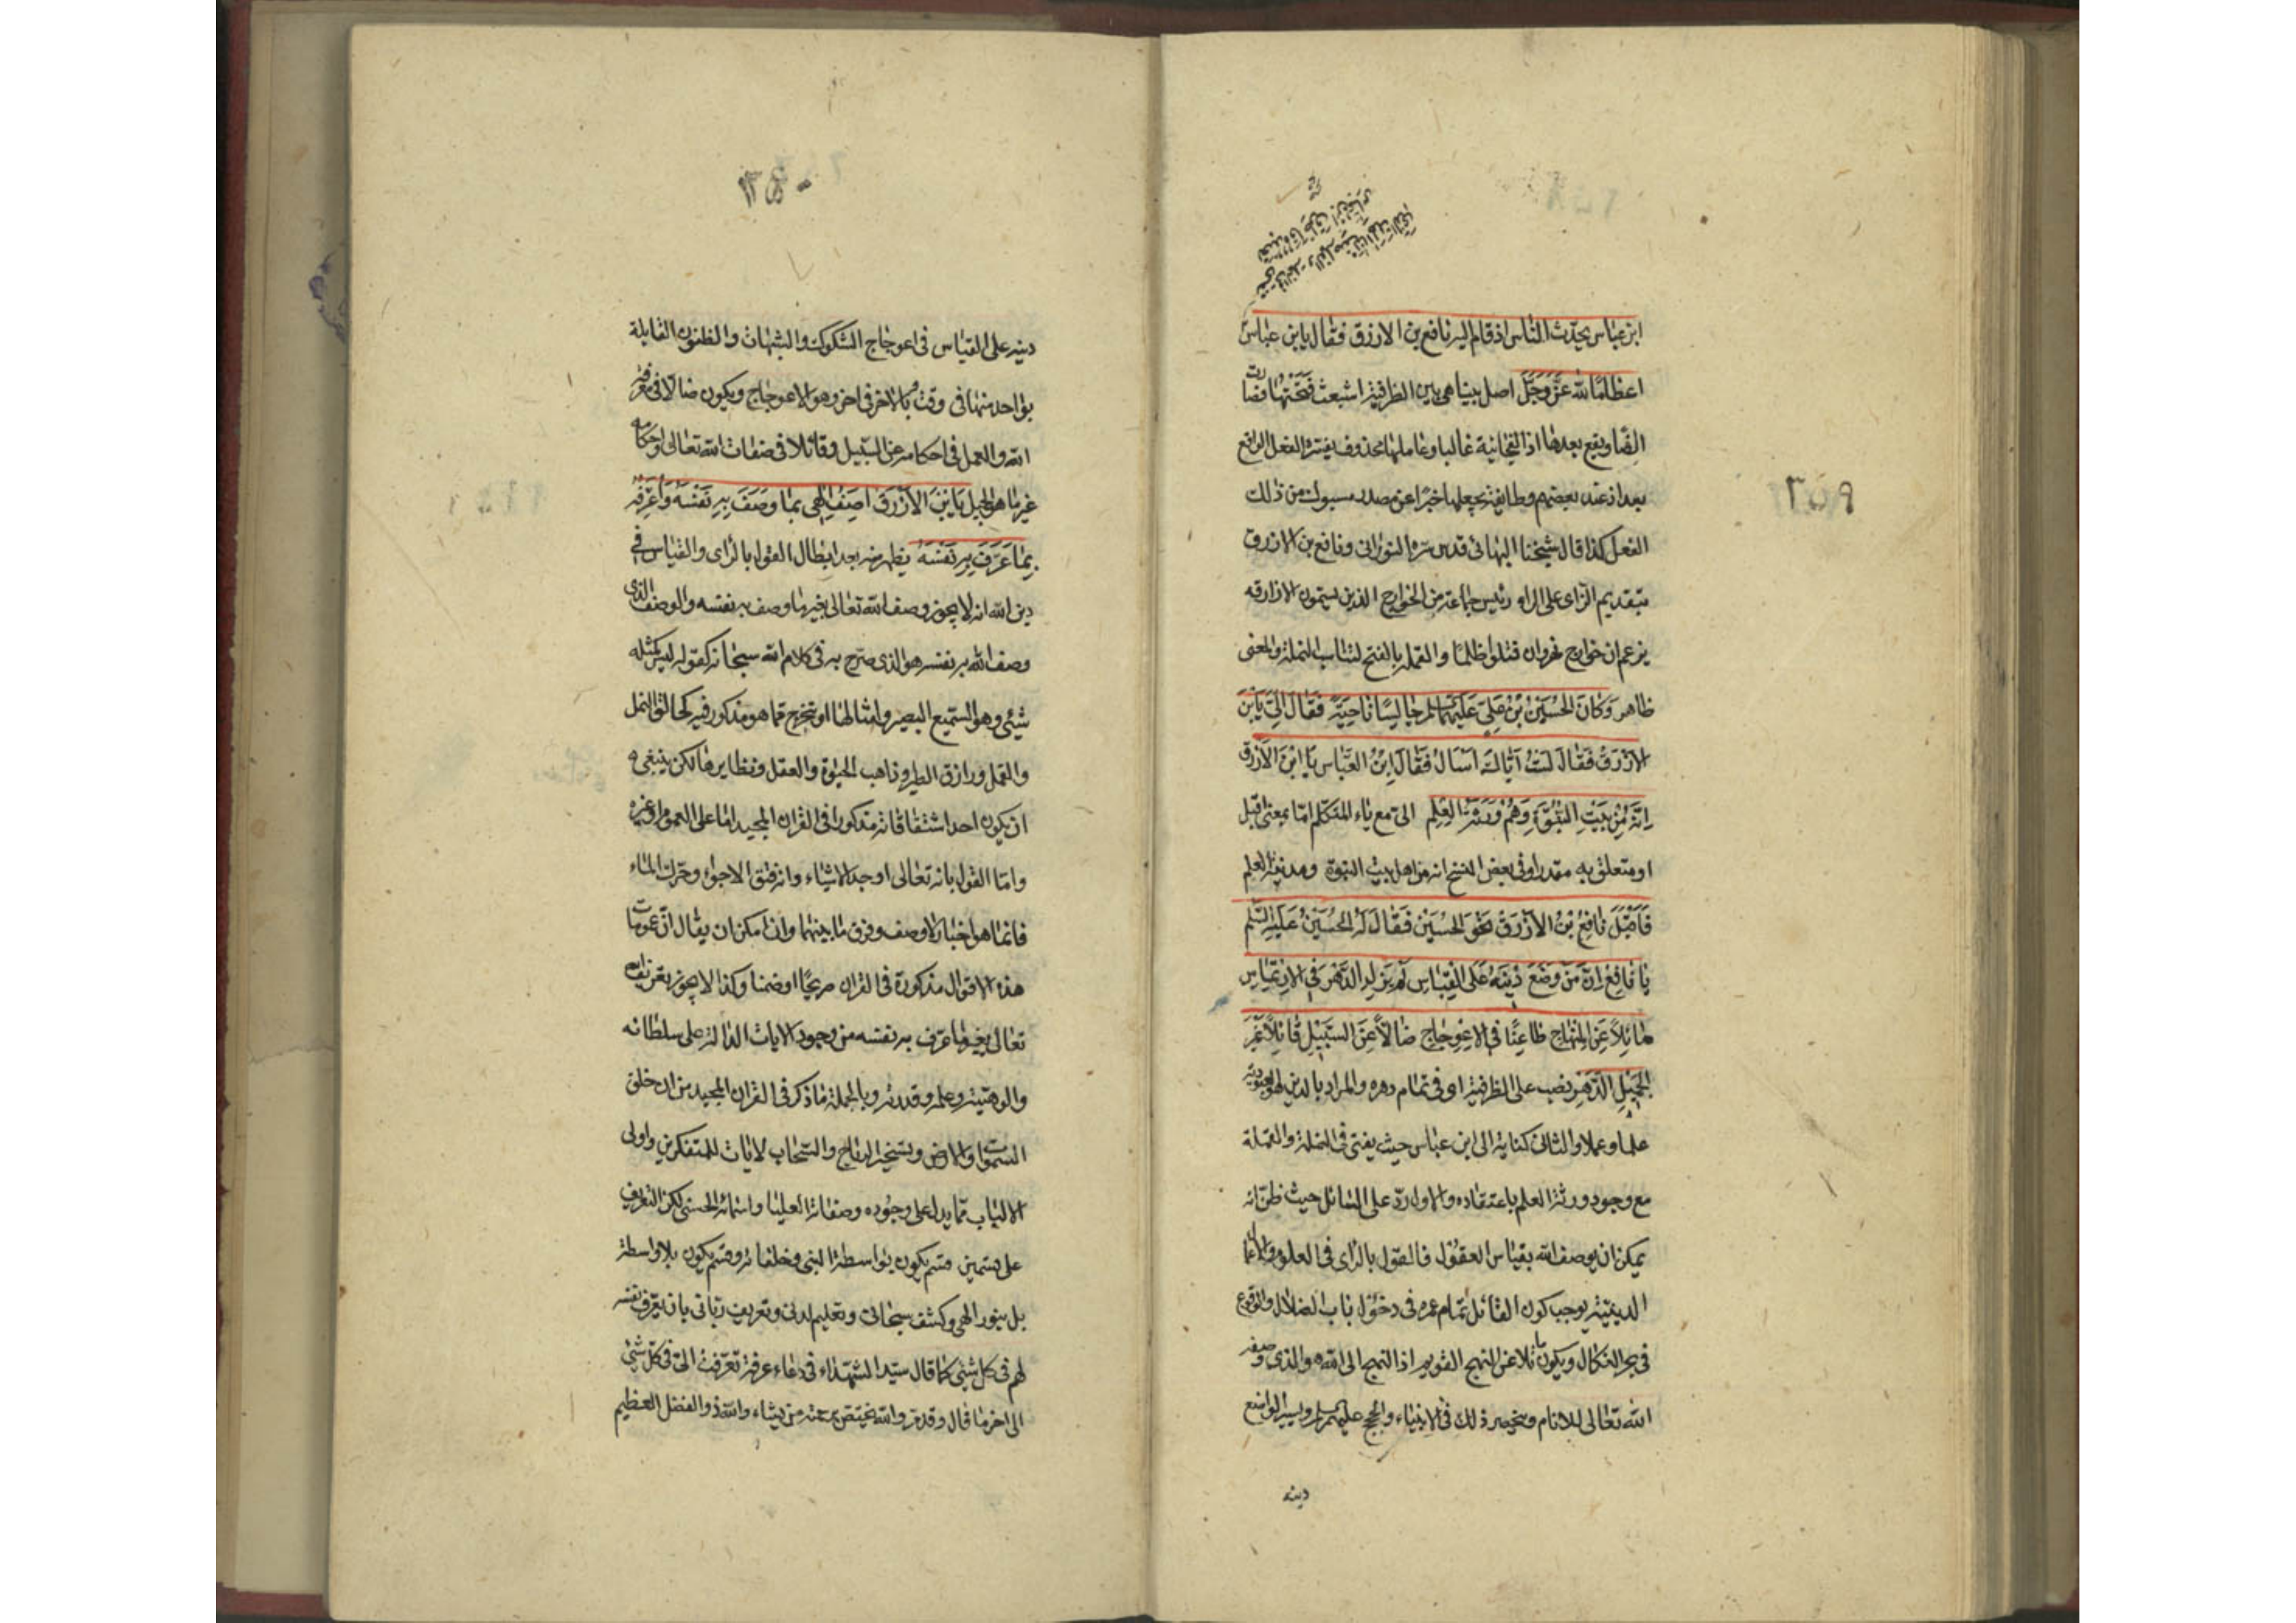 ٢٥٩
ابن عباس يحدّث الناس اذ قام اليه نافع بن الازرق فقال يا بن عباس
اعظاما لله عزّ وجلّ اصل بينا هي بين الظرفية اشبعت فتحتها فصارت
الفا ويقع بعدها اذ الفجائية غالبا وعاملها محذوف يفسّره الفعل الواقع
بعد اذ عند بعضهم وطايفة يجعلها خبرا عن مصدر مسبوك من ذلك
الفعل كذا قال شيخنا البهائي قدس سره النوراني ونافع بن الازرق
بتقديم الزاى على الراء رئيس جماعة من الخوارج الذين يسمون الازارقة
يزعم ان خوارج نهروان قتلوا ظلما والقملة بالفتح لتناسب النملة والمعنى
ظاهر وَكَانَ الحُسَيْنُ بْنُ عَلِيّ عَلَيْهِمَا السلم جَالِسًا نَاحِيَةً فَقَالَ اِلَيَّ يَا بْنَ
الاَزْرَقِ فَقَالَ لَسْتُ اِيَّاكَ اَسْأَلُ فَقَالَ اِبْنُ العَبَّاس يَا ابْنَ الاَزْرَقِ
اِنَّهُ مِنْ بَيْتِ النُّبُوَّةِ وَهُمْ وَرَثَةُ العِلْمِ اليّ مع ياء المتكلم امّا بمعنى اقبل
او متعلق به مقدرا وفي بعض النسخ انه من اهل بيت النبوة ومدينة العلم
فَاَقْبَلَ نَافِعُ بْنُ الاَزْرَقِ نَحْوَ الحُسَيْنِ فَقَالَ لَهُ الحُسَيْنُ عَلَيْهِ السَّلم
يَا نَافِعُ اِنَّ مَنْ وَضَعَ دِيْنَهُ عَلَى القِيَاسِ لَمْ يَزَلِ الدَّهْرَ فِي الاِرْتِمَاسِ
مَائِلاً عَنِ المِنْهَاجِ ظَاعِنًا فِي الاِعْوِجَاجِ ضَالاًّ عَنِ السَّبِيْلِ قَائِلاً غَيْرَ
الجَمِيْلِ الدّهر نصب على الظرفية اى في تمام دهره والمراد بالدين هو العبودية
علما وعملا والثاني كناية الى ابن عباس حيث يفتى في النملة والقملة
مع وجود ورثة العلم باعتقاده والاول ردّ على السائل حيث ظنّ انه
يمكن ان يوصف الله بقياس العقول فالقول بالراى في العلوم والاعمال
الدينية يوجب كون القائل تمام عمره في دخول باب الضلال والوقوع
في بحر النكال ويكون مائلا عن النهج القويم اذ النهج الى الله هو الذى وضعه
الله تعالى للانام وينحصر ذلك في الانبياء والحجج عليهم السلم ويسير الواضع
دينه
٢٦٠
دينه على القياس في اعوجاج الشكوك والشبهات والظنون القابلة
بواحد منها في وقت وبالاخر في اخر وهو الاعوجاج ويكون ضالا في معرفة
الله والعمل في احكامه عن السبيل وقائلا في صفات الله تعالى واحكامه
غير ما هو الجميل يَا بْنَ الاَزْرَقِ اَصِفُ اِلٰهِي بِمَا وَصَفَ بِهِ نَفْسَهُ وَاُعَرِّفُهُ
بِمَا عَرَّفَ بِهِ نَفْسَهُ يظهر منه بعد ابطال القول بالراى والقياس في
دين الله انه لا يجوز وصف الله تعالى بغير ما وصف به نفسه والوصف الذى
وصف الله به نفسه هو الذى صرّح به في كلام الله سبحانه كقوله ليس كمثله
شيئ وهو السميع البصير وامثالها او يخرج مما هو مذكور فيه كخالق النمل
والقمل ورازق الطير وذاهب الحيوة والعقل ونظايرها لكن ينبغى
ان يكون احد اشتقاقاته مذكورا في القران المجيد اما على العموم او غيره
وامّا القول بانه تعالى اوجد الاشياء وانه فتق الاجواء وحرّك الماء
فانما هو اخبار لا وصف وفرق ما بينهما وان امكن ان يقال ان عمومات
هذه الاقوال مذكورة في القران صريحا او ضمنا وكذا لا يجوز تعريفه
تعالى بغير ما عرّف به نفسه من وجود الايات الدالة على سلطانه
والوهيته وعلمه وقدرته وبالجملة ما ذكر في القران المجيد من ان خلق
السموات والارض وتسخير الرياح والسحاب لايات للمتفكرين واولى
الالباب مما يدل على وجوده وصفاته العليا واسمائه الحسنى لكن التعريف
على قسمين قسم يكون بواسطة النبى وخلفائه وقسم يكون بلا واسطة
بل بنور الهى وكشف سبحانى وتعليم لدنى وتعريف ربانى بان يعرّف نفسه
لهم في كل شيئ كما قال سيّد الشهداء في دعاء عرفة تعرّفت اليّ في كلّ شيئ
الى اخر ما قال وقد مر والله يختص برحمته من يشاء والله ذو الفضل العظيم